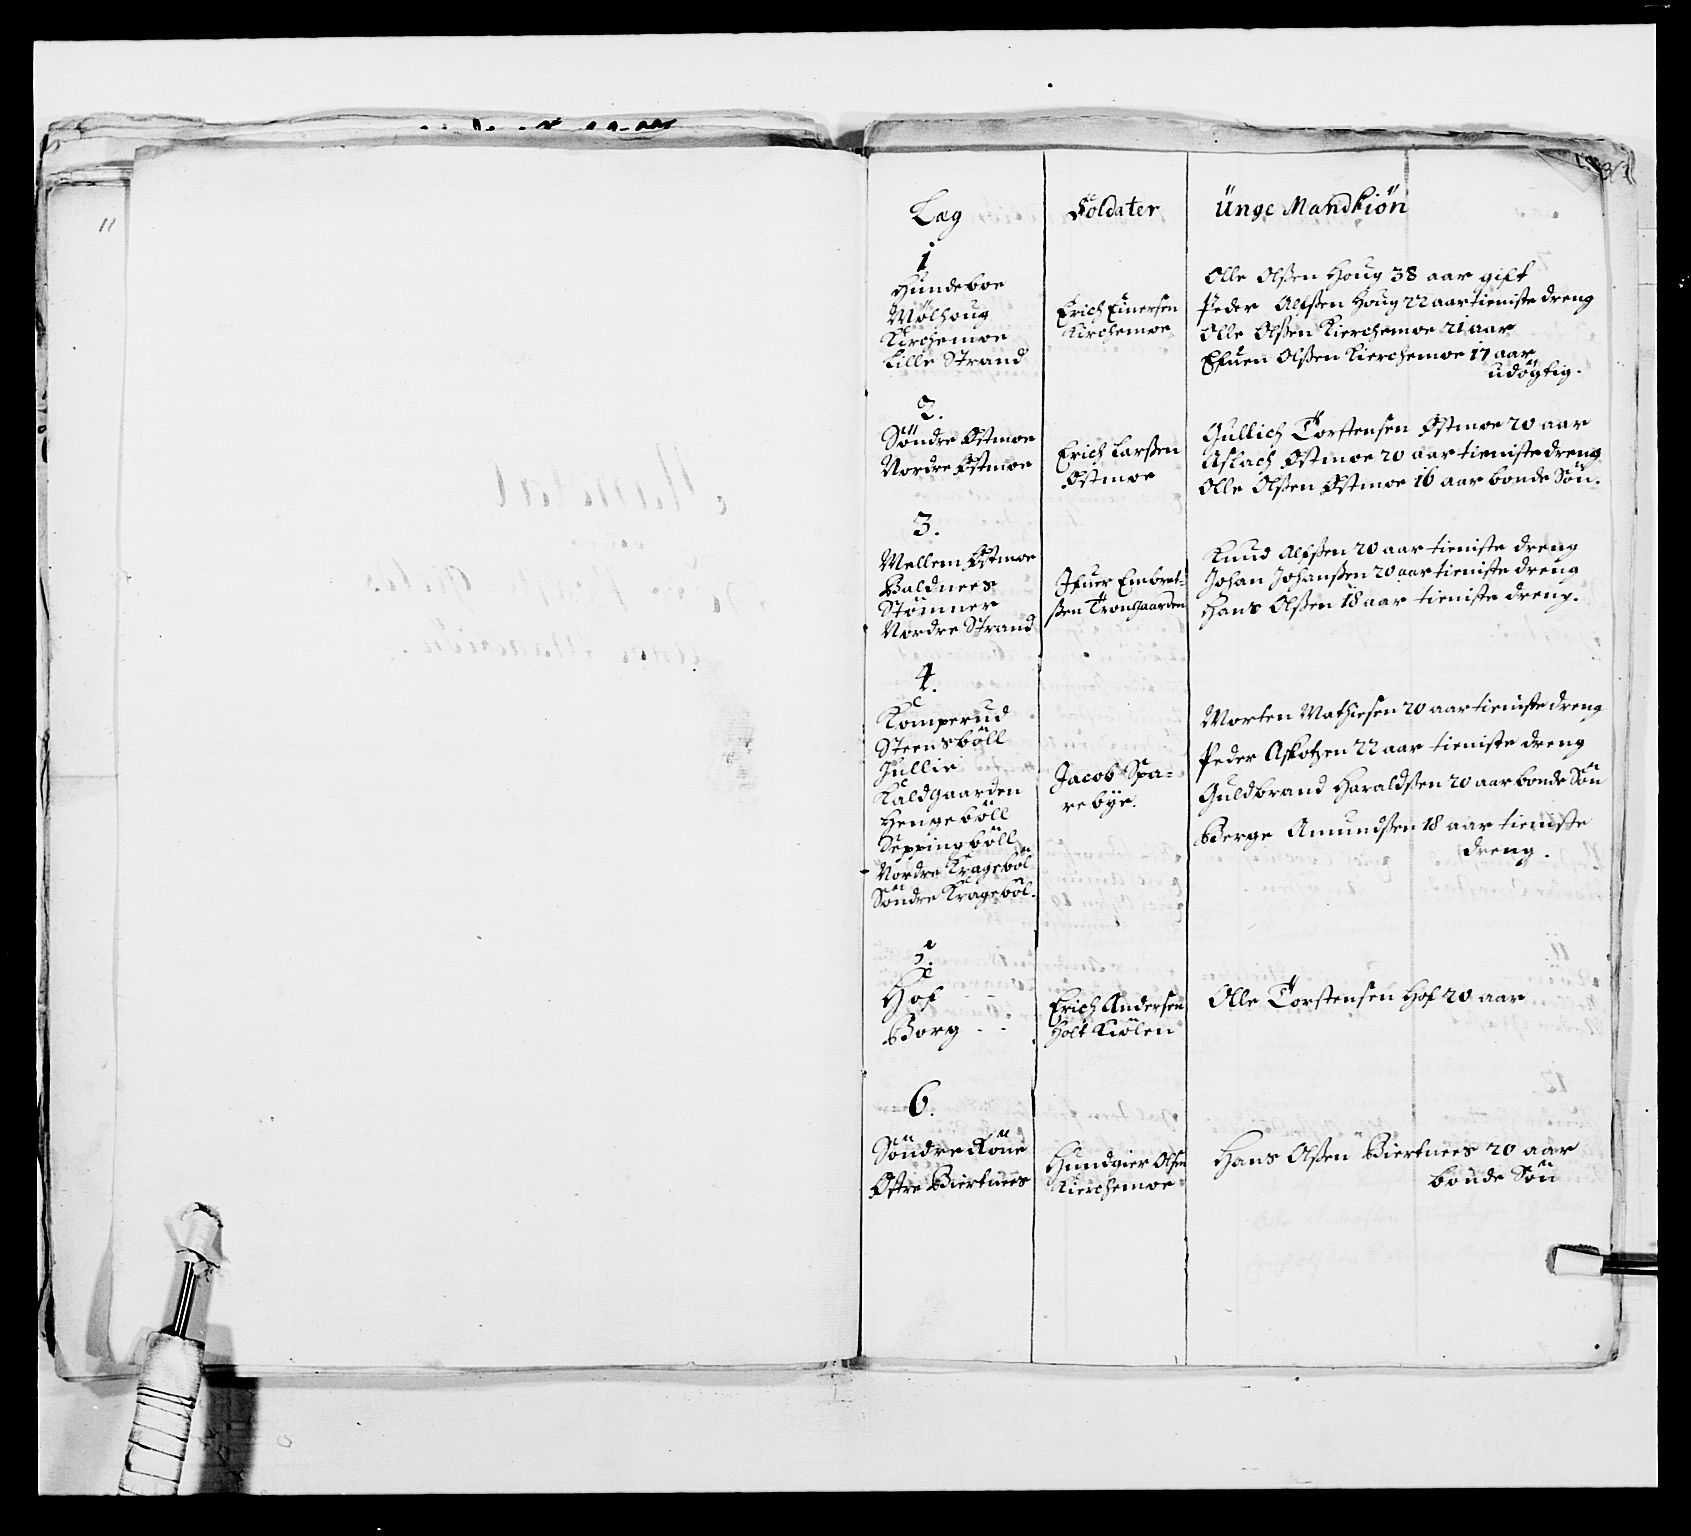 Læg
Soldater
Unge Mandkiön
1
Hundeboe
Mølhoug
Kirchemoe
Lille Strand
Erich Einersen
Kirchemoe
Olle Olßen Houg 38 aar gift
Peder Alfßen Houg 22 aar tieniste dreng
Olle Olßen Kierchemoe 21 aar
Efuen Olßen Kierchemoe 17 aar
udögtig.
2.
Söndre Østmoe
Nordre Østmoe
Erich Larßen
Østmoe
Gullich Torstensen Østmoe 20 aar
Aslach Østmoe 20 aar tieniste dreng
Olle Olßen Østmoe 16 aar bonde Sön.
3.
Mellem Østmoe
Baldnees
Stömner
Nordre Strand
Ifuer Embret-
ßen Trongaarden
Knud Alfßen 20 aar tieniste dreng
Johan Johanßen 20 aar tieniste dreng
Hans Olßen 18 aar tieniste dreng.
4.
Komperud
Steensböll
Jullie
Kaldgaarden
Hengeböll
Seppingböll
Nordre Krageböl
Söndre Krageböl.
Jacob Spa-
rebye.
Morten Mathiesen 20 aar tieniste dreng
Peder Askotzen 22 aar tieniste dreng
Guldbrand Haraldßen 20 aar bonde Sön
Berge Amundßen 18 aar tieniste
dreng.
5.
Hof
Borg - -
Erich Andersen
Holt Kiölen
Olle Torstensen Hof 20 aar
6.
Söndre Röne
Østre Biertnees
Hundgier Olsen
Kierchemoe
Hans Olßen Biertnees 20 aar
bonde Sön